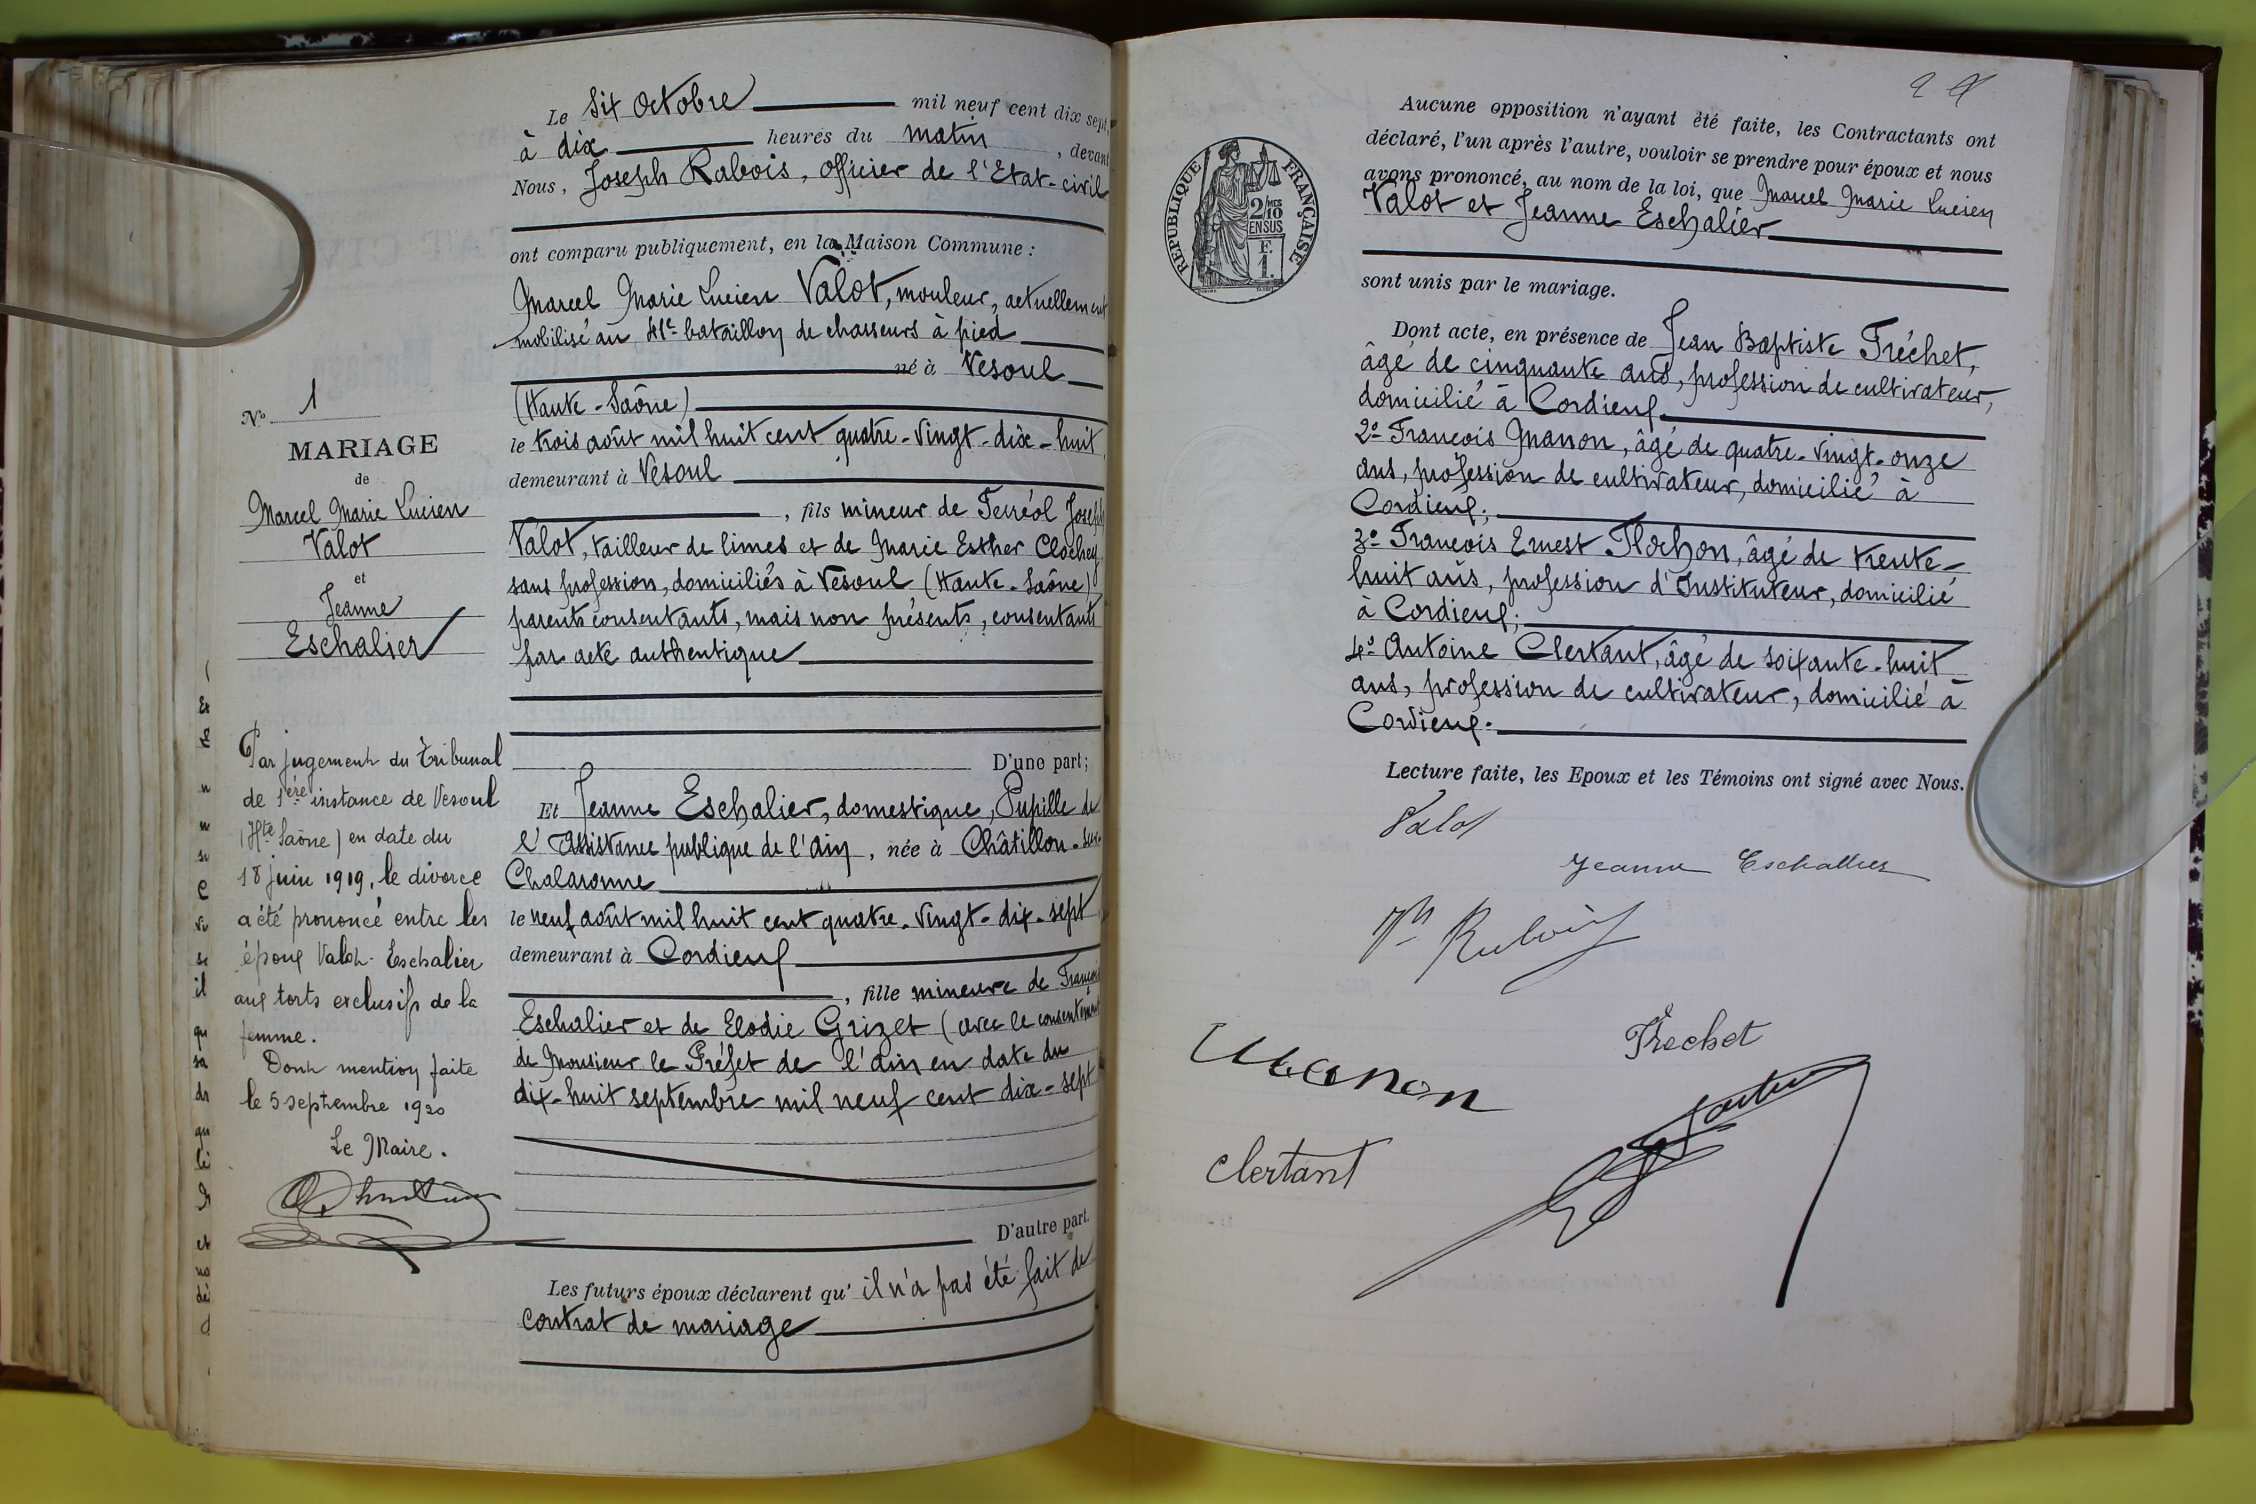 Le Six Octobre mil neuf cent dix sept,
à dix heures du matin, devant
Nous, Joseph Rabois, officier de l'Etat-civil
ont comparu publiquement, en la Maison Commune :
Marcel Marie Lucien Valot, mouleur, actuellement
mobilisé au 41e bataillon de chasseurs à pied
né à Vesoul
(Haute-Saône)
le trois août mil huit cent quatre-vingt-dix-huit
demeurant à Vesoul
, fils mineur de Ferréol Joseph
Valot, tailleur de limes et de Marie Esther Clochey
sans profession, domiciliés à Vesoul (Haute-Saône)
parents consentants, mais non présents, consentants
par acte authentique
D'une part;
Et Jeanne Eschalier, domestique, Pupille de
l'Assistance publique de l'Ain, née à Châtillon-sur-
Chalaronne
le neuf août mil huit cent quatre-vingt-dix-sept
demeurant à Cordieux
, fille mineure de François
Eschalier et de Elodie Grizet (avec le consentement
de Monsieur le Préfet de l'Ain en date du
dix-huit septembre mil neuf cent dix-sept
D'autre part.
Les futurs époux déclarent qu'il n'a pas été fait de
contrat de mariage
No 1
MARIAGE
de
Marcel Marie Lucien
Valot
et
Jeanne
Eschalier
Par jugement du Tribunal
de 1ère instance de Vesoul
(Hte Saône) en date du
18 juin 1919, le divorce
a été prononcé entre les
époux Valot-Eschalier
aux torts exclusifs de la
femme.
Dont mention faite
le 5 septembre 1920
Le Maire.
Aucune opposition n'ayant été faite, les Contractants ont
déclaré, l'un après l'autre, vouloir se prendre pour époux et nous
avons prononcé, au nom de la loi, que Marcel Marie Lucien
Valot et Jeanne Eschalier
sont unis par le mariage.
RÉPUBLIQUE FRANÇAISE
2/10 MES
EN SUS
F.
1.
Dont acte, en présence de Jean Baptiste Fréchet,
âgé de cinquante ans, profession de cultivateur,
domicilié à Cordieux
2° François Manon, âgé de quatre-vingt-onze
ans, profession de cultivateur, domicilié à
Cordieux;
3° François Ernest Flochon, âgé de trente-
huit ans, profession d'Instituteur, domicilié
à Cordieux;
4° Antoine Clertant, âgé de soixante-huit
ans, profession de cultivateur, domicilié à
Cordieux.
Lecture faite, les Epoux et les Témoins ont signé avec Nous.
Valot
Jeanne Eschallier
Manon
Fréchet
Clertant